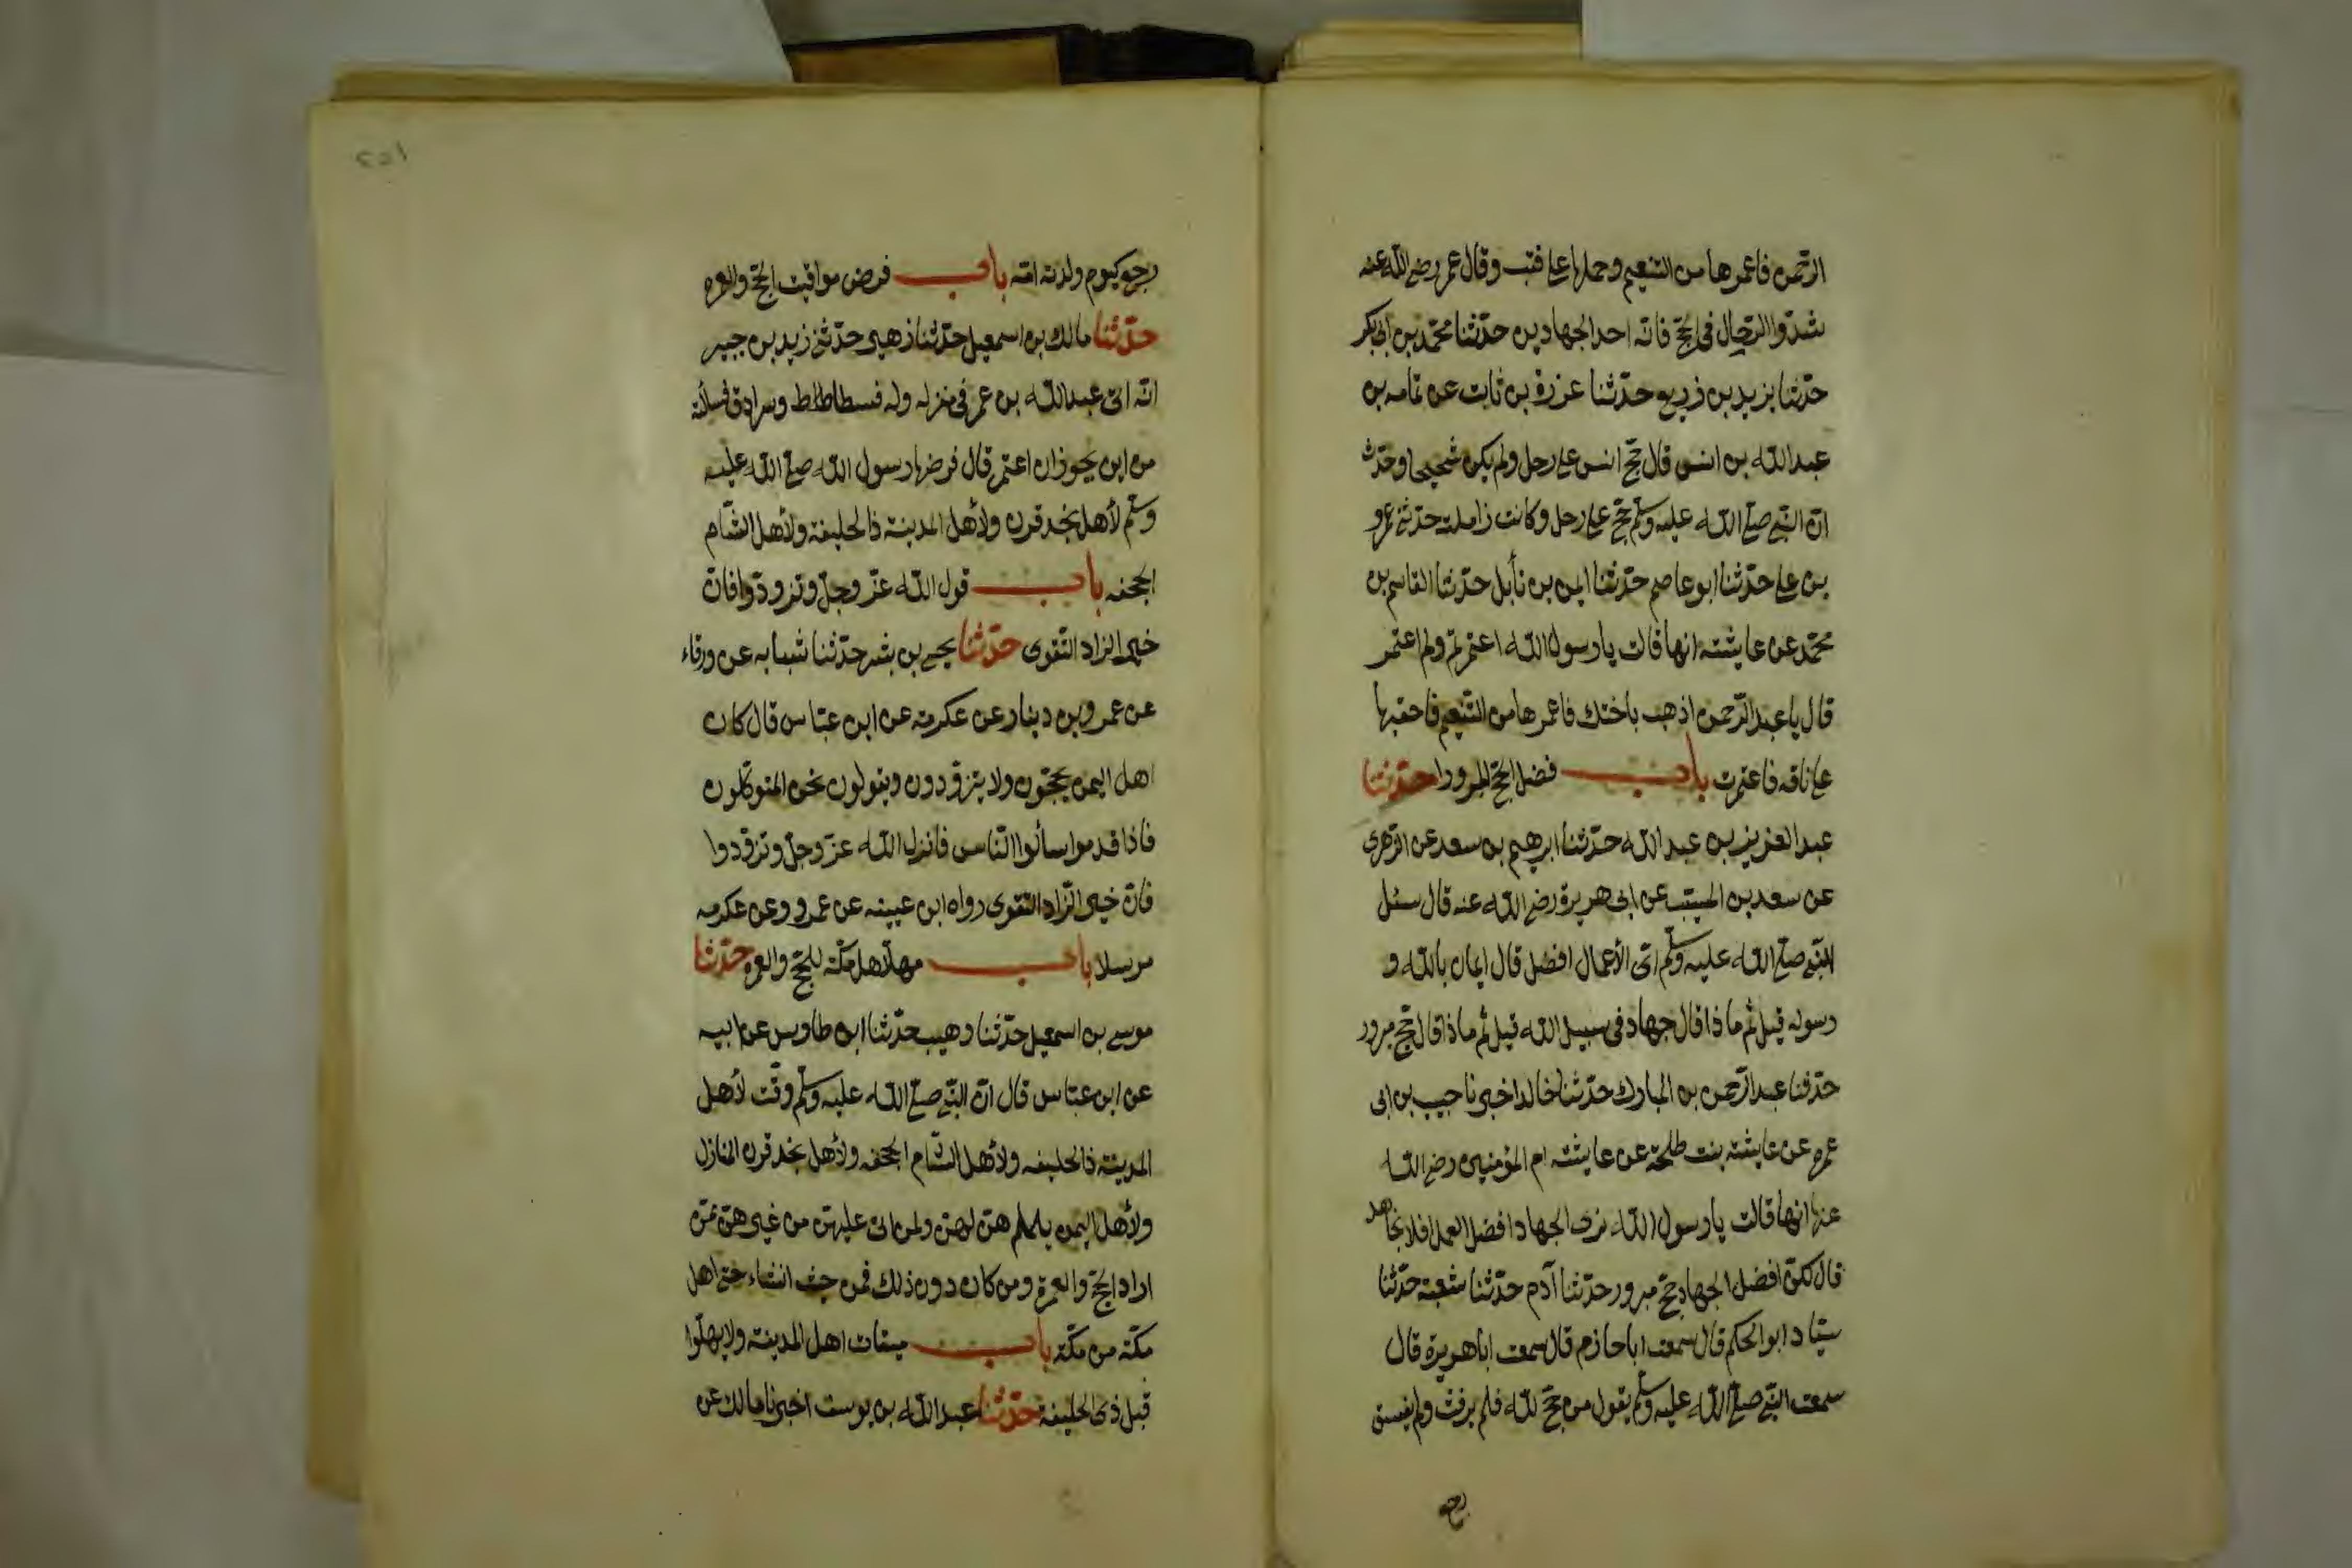 الرحمن فاعمرها من التنعيم وحملها على قتب وقال عمر رضى الله عنه
شدّوا الرّحال فى الحجّ فانّه احد الجهادين حدّثنا محمّد بن ابى بكر
حدّثنا يزيد بن زريع حدّثنا عزرة بن ثابت عن ثمامه بن
عبد الله بن انس قال حجّ انس على رحل ولم يكن شحيحا وحدّث
انّ النّبى صلّى الله عليه وسلّم حجّ على رحل وكانت زاملته حدّثنى عمرو
بن على حدّثنا ابو عاصم حدّثنا ايمن بن نأبل حدّثنا القاسم بن
محمّد عن عايشة انها قالت يا رسول الله اعتمرتم ولم اعتمر
قال يا عبد الرّحمن اذهب باختك فاعمرها من التنعيم فاحقبها
على ناقه فاعتمرت باب فضل الحجّ المبرور حدّثنا
عبد العزيز بن عبد الله حدّثنا ابرهيم بن سعد عن الزهرى
عن سعد بن المسيّب عن ابى هريرة رضى الله عنه قال سئل
النّبى صلّى الله عليه وسلّم اىّ الأعمال افضل قال ايمان بالله و
رسوله قيل ثم ما ذا قال جهاد فى سبيل الله قيل ثم ما ذا قال حجّ مبرور
حدّثنا عبد الرّحمن بن المبارك حدّثنا خالد اخبرنا حبيب بن ابى
عمره عن عايشة بنت طلحة عن عايشة ام المؤمنين رضى الله
عنها انها قالت يا رسول الله نرى الجهاد افضل العمل افلا نجاهد
قال لكنّ افضل الجهاد حجّ مبرور حدّثنا آدم حدّثنا شعبة حدّثنا
سيّار ابو الحكم قال سمعت ابا حازم قال سمعت ابا هريرة قال
سمعت النّبى صلّى الله عليه وسلّم يقول من حجّ لله فلم يرفث ولم يفسق
رجع
٢٥١
رجع كيوم ولدته امّه باب فرض مواقيت الحجّ والعمره
حدّثنا مالك بن اسمعيل حدّثنا زهير حدّثنى زيد بن جبير
انّه اتى عبد الله بن عمر فى منزله وله فسطاط وسرادق فسألته
من اين يجوز ان اعتمر قال فرضها رسول الله صلّى الله عليه
وسلّم لأهل نجد قرن ولأهل المدينة ذا الحليفة ولأهل الشام
الجحفه باب قول الله عزّ وجلّ وتزوّدوا فانّ
خير الزاد التّقوى حدّثنا يحيى بن بشر حدّثنا شبابه عن ورقاء
عن عمرو بن دينار عن عكرمة عن ابن عبّاس قال كان
اهل اليمن يحجّون ولا يتزوّدون ويقولون نحن المتوكّلون
فاذا قدموا سألوا النّاس فانزل الله عزّ وجلّ وتزوّدوا
فانّ خير الزّاد التقوى رواه ابن عيينه عن عمرو وعن عكرمه
مرسلا باب مهلّ اهل مكّة للحجّ والعمره حدّثنا
موسى بن اسمعيل حدّثنا وهيب حدّثنا ابن طاوس عن ابيه
عن ابن عبّاس قال انّ النّبى صلّى الله عليه وسلّم وقّت لأهل
المدينة ذا الحليفه ولأهل الشّام الجحفه ولأهل نجد قرن المنازل
ولأهل اليمن يلملم هنّ لهنّ ولمن اتى عليهنّ من غيرهنّ ممّن
اراد الحجّ والعمرة ومن كان دون ذلك فمن حيث انشاء حتى اهل
مكّة من مكّة باب ميقات اهل المدينة ولا يهلّوا
قبل ذى الحليفة حدّثنا عبد الله بن يوسف اخبرنا مالك عن